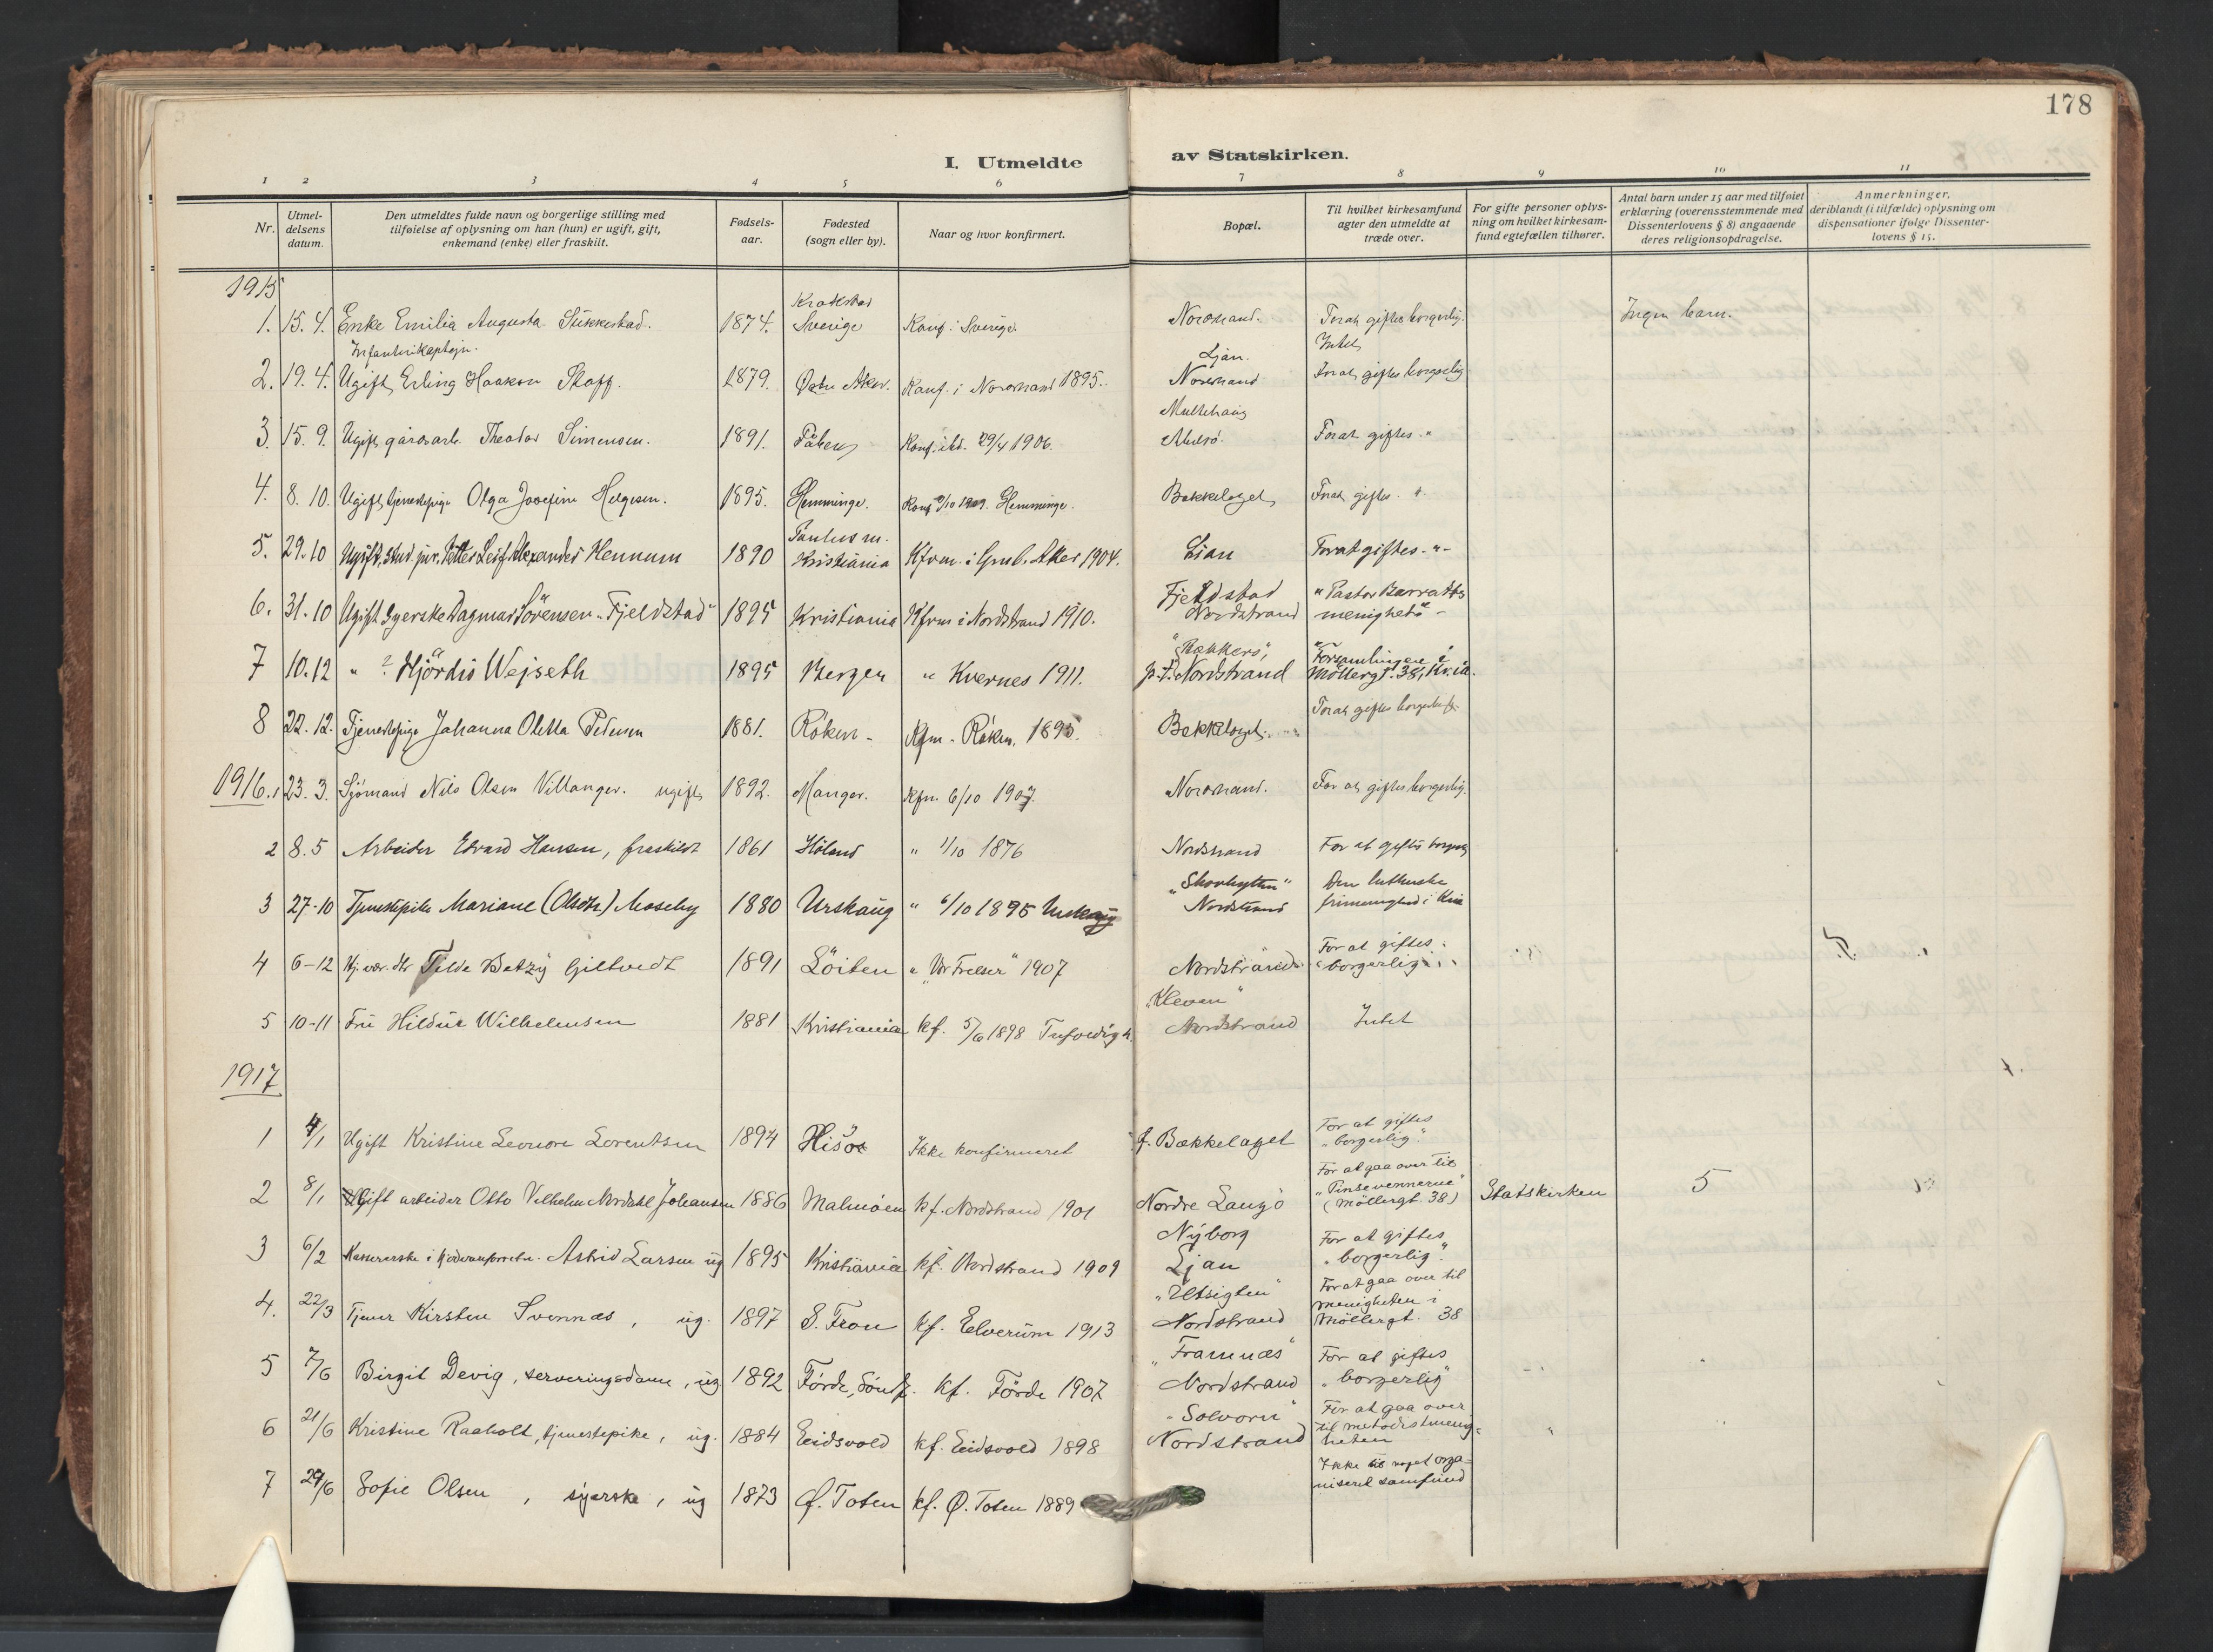 178
I. Utmeldte av Statskirken.
1 2 3 4 5 6 7 8 9 10 11
Nr.
Utmel-
delsens
datum.
Den utmeldtes fulde navn og borgerlige stilling med
tilføielse af oplysning om han (hun) er ugift, gift,
enkemand (enke) eller fraskilt.
Fødsels-
aar.
Fødested
(sogn eller by).
Naar og hvor konfirmert.
Bopæl.
Til hvilket kirkesamfund
agter den utmeldte at
træde over.
For gifte personer oplys-
ning om hvilket kirkesam-
fund egtefællen tilhører.
Antal barn under 15 aar med tilføiet
erklæring (overensstemmende med
Dissenterlovens § 8) angaaende
deres religionsopdragelse.
Anmerkninger,
deriblandt (i tilfælde) oplysning om
dispensationer ifølge Dissenter-
lovens § 15.
1915
Krokstad
1. 15. 4. Enke Emilia Augusta 1874. Sverige Konf. i Sverige. Nordstrand. For at giftes borgerlig. Ingen barn.
Infanterikaptejn. Ljan. Intet
2. 19. 4. Ugift Erling Haakon 1879. Østre Aker. Konf. i Nordstrand 1895. Nordstrand For at giftes borgerlig
3. 15. 9. Ugift gårdsarb. Theodor Simensen. 1891. Konf. ibd. 29/4 1906. For at giftes "
4. 8. 10. Ugift tjenestepige Olga Josefine Helgesen. 1895. Hemminge. Konf. 1909. Hemminge. Bækkelaget For at giftes. "
Paulus m.
5. 29. 10 Ugift, stud. jur. Leif Alexander Hennum 1890 Kristiania Kfrm. i Aker 1904. Lian For at giftes - " -
Fjeldstad " Pastor Barratts
6. 31. 10 Ugift Syerske Dagmar Sörensen "Fjeldstad" 1895 Kristiania Kfrm i Nordstrand 1910. Nordstrand menighet" -
"Bakkero", "Forsamlingen i
7 10. 12 " ? Hjördis Wejseth 1895 Bergen " Kvernes 1911. p. t. Nordstrand Möllergt. 38, Kr.ia.
8 22. 12. Tjenestepige Johanna Oletta Pedersen 1881. Röken - Kfm - Röken. 1895. Bækkelaget. For at giftes borgerlig
1916. 1 23. 3. Sjömand Nils Olsen Villanger. ugift 1892. Manger. Kfm. 6/10 1907. Nordstrand. For at giftes borgerlig.
2 8. 5 Arbeider Edvard Hansen, fraskilt 1861 Höland " 1/10 1876 Nordstrand For at giftes borgerlig
"Skovhytten" Den lutherske
3 27-10 Tjenestepike Mariane (Olsdtr) Moseby 1880 Urskaug " 6/10 1895 Urskaug Nordstrand frimenighed i Kria
For at giftes
4 6-12 Hj. vær. dtr Tilda Betzy Giltvedt 1891 Löiten " "Vor Frelser" 1907 Nordstrand "borgerlig"
"Kleven"
5 10-11 Fru Hildur Wilhelmsen 1881 Kristiania kf. 5/6 1898 Nordstrand Intet
1917
For at giftes
1 4/1 Ugift Kristine Leonore Lorentsen 1894 Hisö Ikke konfirmeret f. Bækkelaget "borgerlig".
For at gaa over til
"Pinsevennerne"
2 8/1 Gift arbeider Otto Vilhelm Nordahl Johansen 1886 Malmöen kf. Nordstrand 1901 Nordre Langö (Möllergt. 38) Statskirken 5
Nyborg For at giftes
3 6/2 Astrid Larsen ug 1895 Kristiania kf. Nordstrand 1909 Ljan "borgerlig".
"Utsigten" For at gaa over til
menigheten i
4. 22/3 Tjener Kirsten Svennæs, ug. 1897 S. Fron kf. Elverum 1913 Nordstrand Möllergt. 38
"Framnæs" For at giftes
5 7/6 Birgit Devig, serveringsdame, ug 1892 Förde, Söndf. kf. Förde 1907 Nordstrand "borgerlig"
"Solvorn" For at gaa over
til metodistmenig-
6 21/6 Kristine Raaholt, tjenestepike, ug. 1884 Eidsvold kf. Eidsvold 1898 Nordstrand heten
Ikke til noget orga-
7 29/6 Sofie Olsen, syerske, ug 1873 Ø. Toten kf. Ø. Toten 1889 niseret samfund